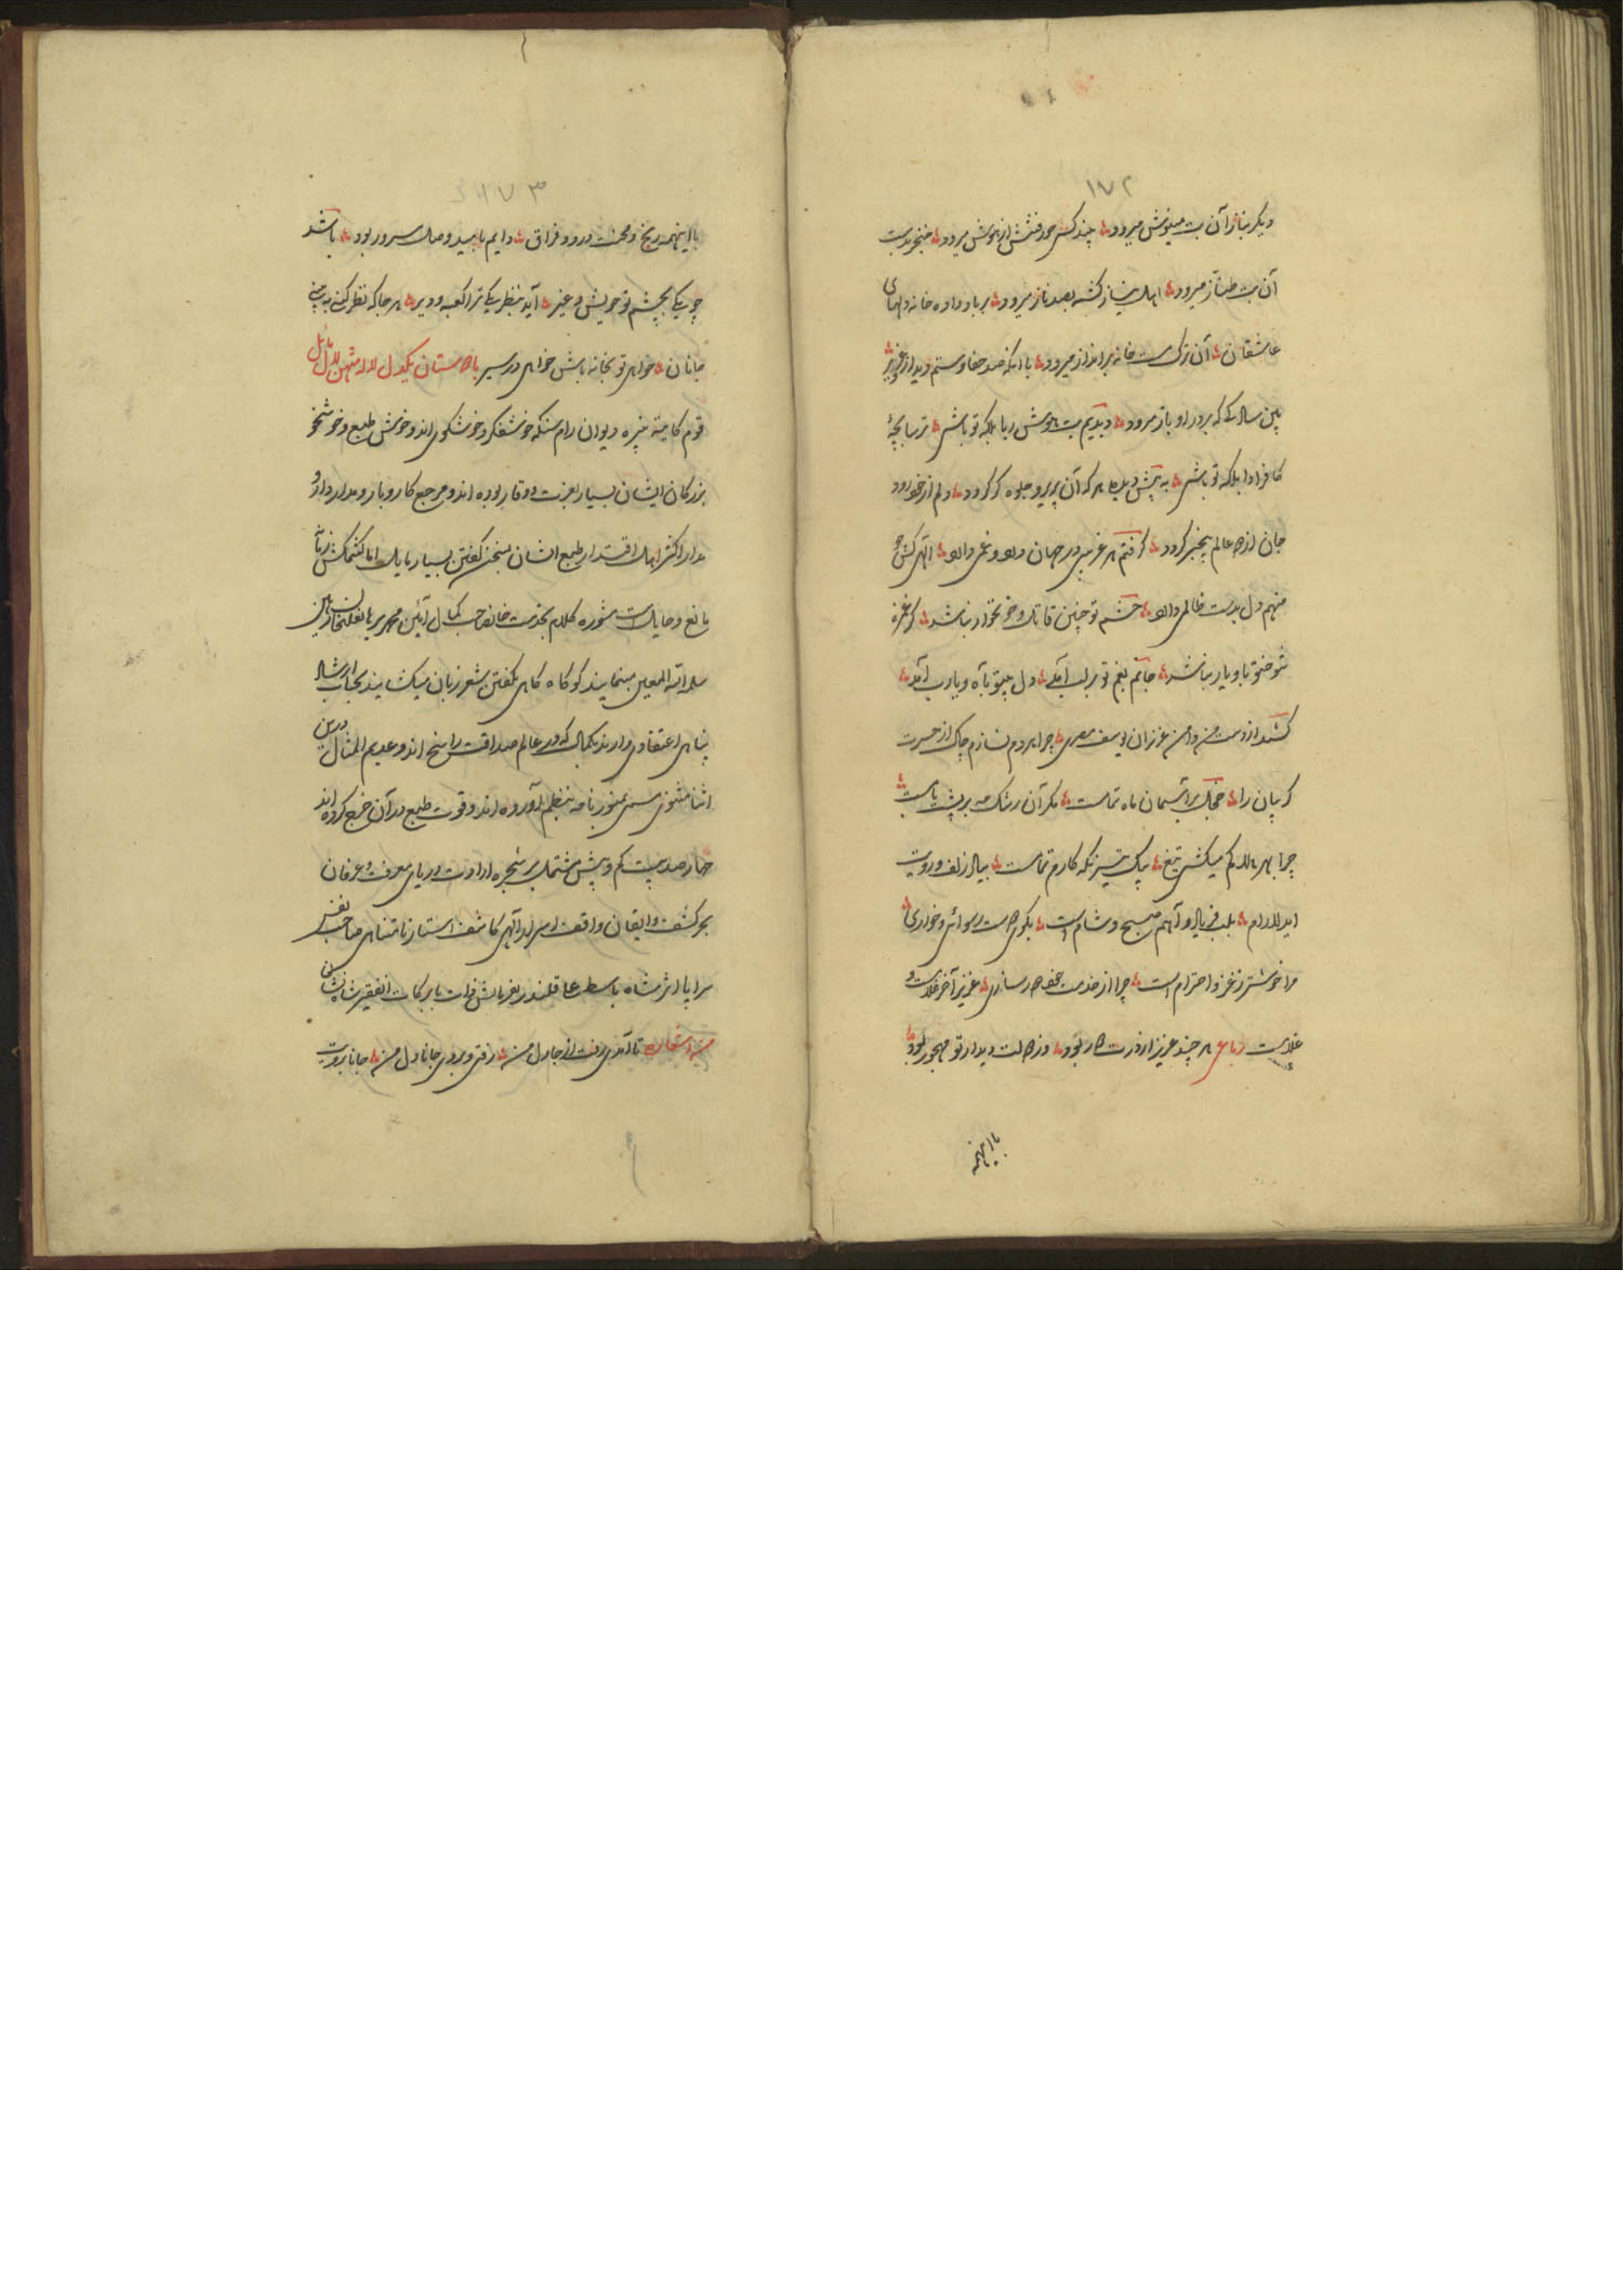 ۱۷۲
دیگر بناز آن بت مینوش میرود چندکس جور فتنش از هوش میرود خنجر بدست
آن بت طناز میرود اهل نیاز کشته بصد ناز میرود بر باد داده خانه دلهای
عاشقان آن ترک مست خانه برانداز میرود با آنکه صد جفا و ستم دید از
سالها که بر در او باز میرود دیدیم بت هوش ربا بلکه تو باشی ترسا بچهٔ
کافر ادا بلکه تو باشی به پیش دیده هر که آن پریرو جلوه گر گردد دلم از خود رود
جان از دو عالم بیخبر گردد گرفتم هر غریبی در جهان درد و غمی دارد الهی کس چو
منهم دل بدست ظالمی دارد چشم تو چنین قاتل و خونخوار نباشد گر غمزه
شوخ تو با او یار نباشد جانم بغم تو بر لب آمد دل بیتو بآه و یارب آمد
کشد از دست من دامن عزیزان یوسف مصری چرا بر دم نسازم چاک از حسرت
گریبان را خجل بر آسمان ماه تمامست مگر آن رشک مه بر پشت بامست
چرا بهر هلاکم میکشی تیغ بیک تیز نگه کارم تمامست بیاد زلف و رویت
ای دلارام بلب فریاد و آهم صبح و شام است بکوی دوست رسوائی و خواری
مرا خوشتر ز عز و احترام است چرا از خدمت خود دور سازی عزیز آخر غلامست و
غلامست رباعی هر چند عزیز از درت دور بود وز دولت دیدار تو مهجور بود
با اینهمه
۱۷۳
با اینهمه رنج و محنت درد و فراق دایم بامید وصل مسرور بود باشد
چو یکی بچشم تو خویش و غیر آید بنظر یکی ترا کعبه و دیر هر جا که نظر کنی به بینی
جانان خواهی تو بخانه باش خواهی در سیر باده ستان یکدل لاله متهن لال مائل
قوم کایتهه نبیره دیوان رام سنگه خوشفکر و خوشگوی اند و خوش طبع و خوشخو
بزرگان ایشان بسیار بعزت و وقار بوده اند و مرجع کاروبار و مدار داد و
مدار اکثر اهل اقتدار طبع ایشان بسخن گفتن بسیار مایل اما کشمکش زمانه
مانع و حایل است مشوره کلام بخدمت خانصاحب کمال آئین
سلمه الله المعین مینمایند گو گاه گاهی بگفتن شعر زبان میکشایند بجناب ارشاد
پناهی اعتقادی دارند بکمال که در عالم صداقت راسخ اند و عدیم المثال درین
اثنا مثنوی مسمی بمنورنامه بنظم آورده اند و قوت طبع در آن خرج کرده اند
چهار صد بیت کم و بیش مشتمل بر شجره ارادت دریای معرفت و عرفان
بحر کشف و ایقان واقف اسرار آلهی کاشف استار نامتناهی صاحب نفس
سراپا اثر شاه باسط علی قلندر بفرمایش ذات با برکات
من اشعاره تا آمدی رفت از جا دل من رفتی و بردی جانا دل من جانا برویت